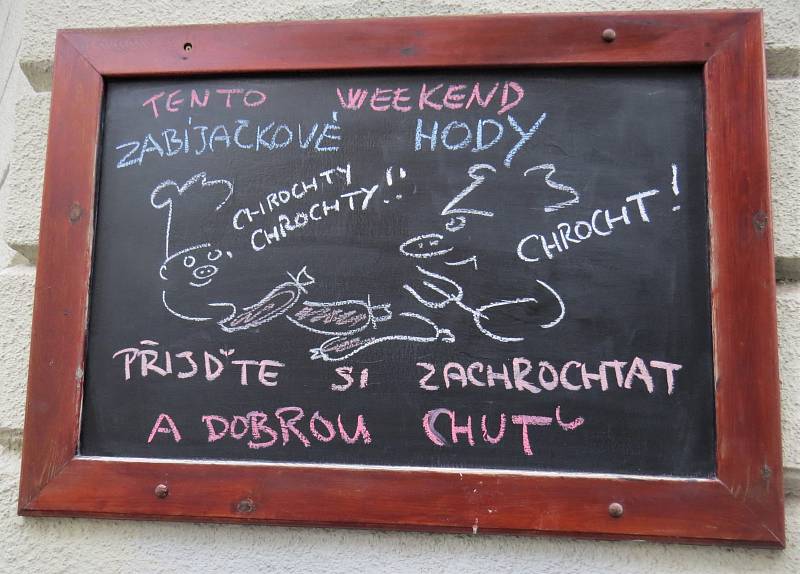 TENTO WEEKEND
ZABÍJAČKOVÉ HODY
CHROCHTY
CHROCHTY!!
CHROCHT!
PŘIJĎTE SI ZACHROCHTAT
A DOBROU CHUŤ